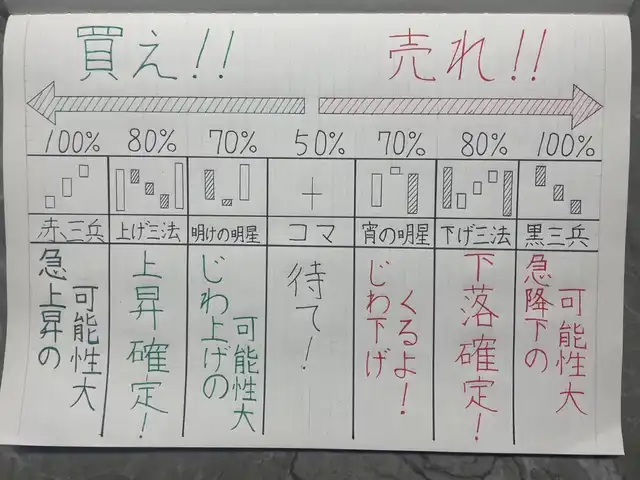 買え!!
売れ!!
100%
80%
70%
50%
70%
80%
100%
赤三兵
上げ三法
明けの明星
コマ
宵の明星
下げ三法
黒三兵
急上昇の
可能性大
上昇確定!
じわ上げの
可能性大
待て!
じわ下げ
くるよ!
下落確定!
急降下の
可能性大